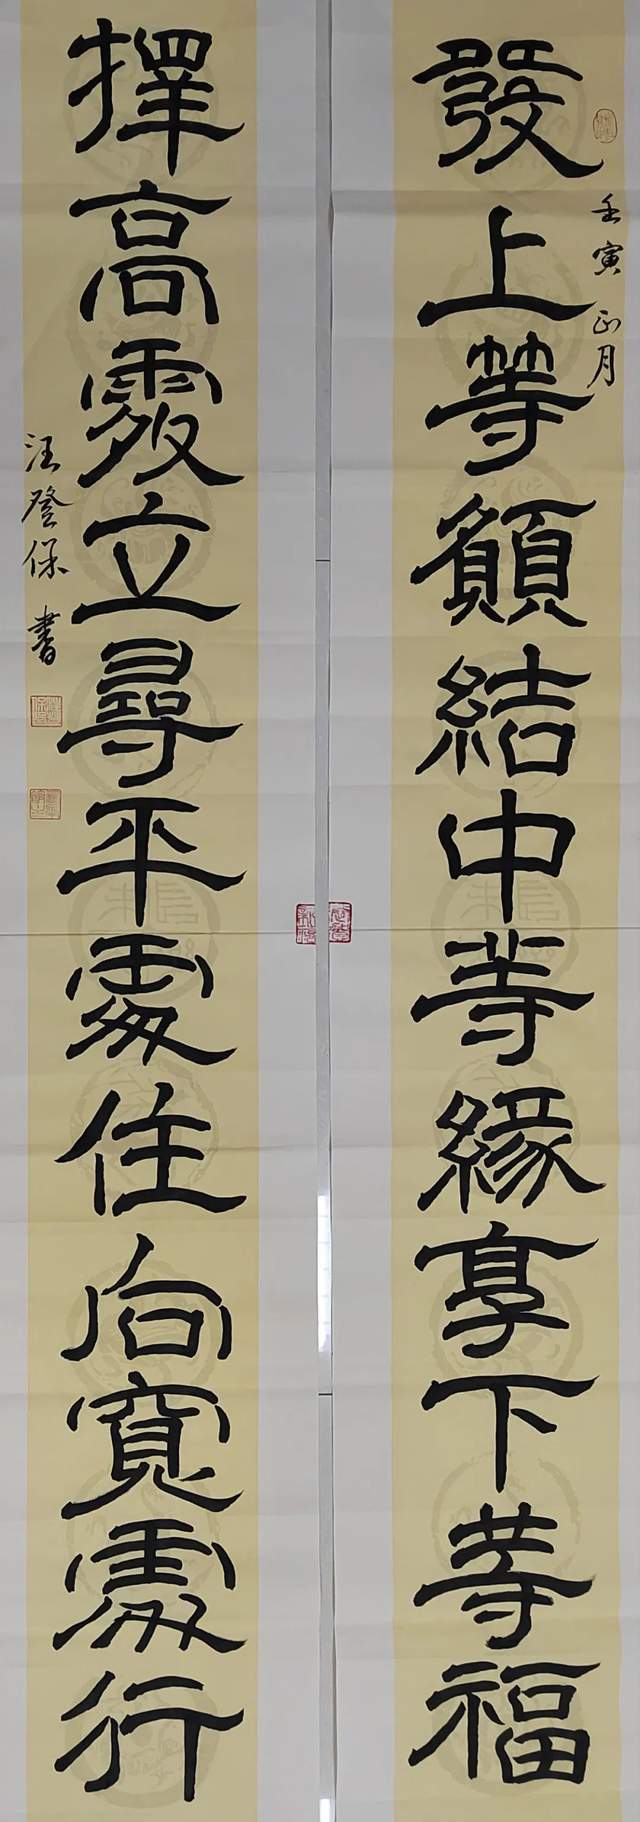 發上等願結中等緣享下等福
壬寅正月
擇高處立尋平處住向寬處行
汪登保書